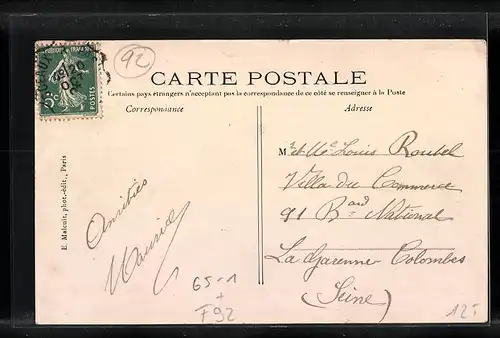 92
CARTE POSTALE
Certains pays étrangers n'acceptent pas la correspondance de ce côté se renseigner à la Poste
Correspondance
Adresse
5c
POSTES
E. Malcuit, phot.-édit., Paris
Amitiés
Maurice
Mr et Me Louis Roubel
Villa du Commerce
91 Bard National
La Garenne-Colombes
(Seine)
65-1
+
F92